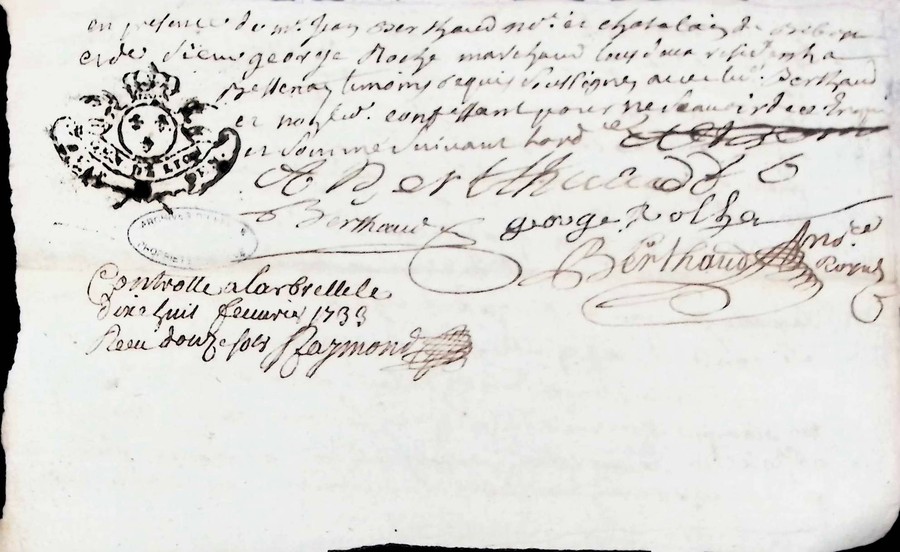 en presence de mr. Jean Berthaud nore. et chatelain de
et de sieur george Roche marchand tous deux residents a
Bessenay temoins requis soussignes avec led. Berthaud
et non led. confessant pour ne scavoir de ce requis
et somme suivant lord.ce
A Berthaud
Berthaud george Roche
Berthaud nore. Royal
GEN DE LION
ARCHIVES
PROPRIETE
Controlle a larbrelle le
dix huit feuvrier 1733
Receu douze sols Raymond